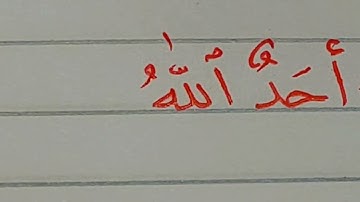 أَحَدٌ ٱللَّهُ